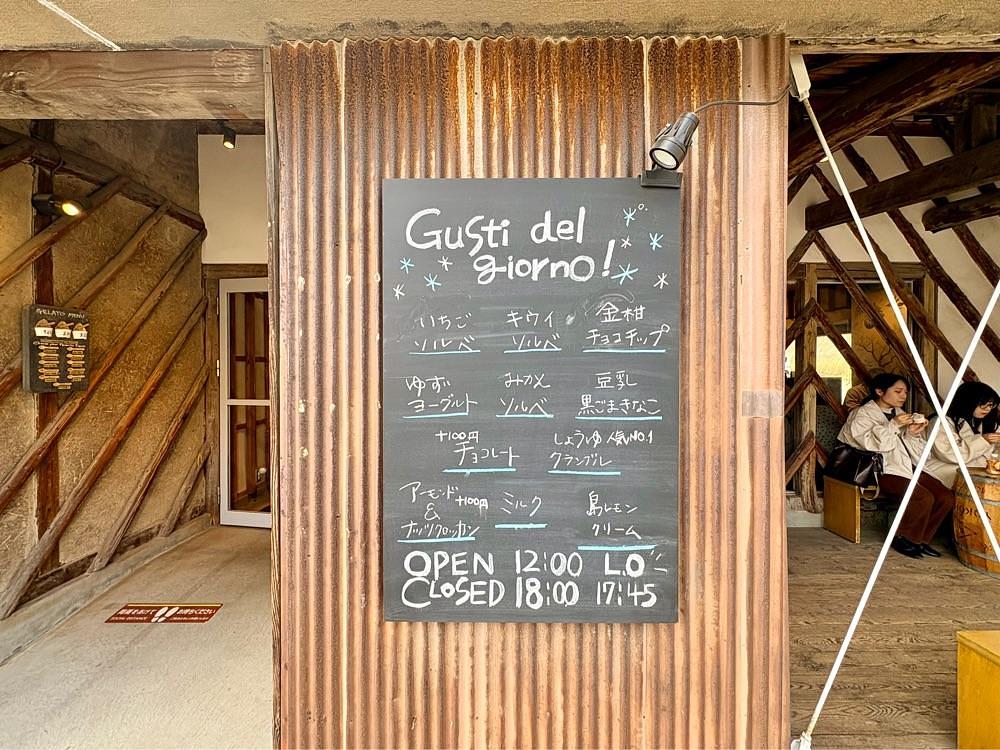 Gusti del
giorno!
いちご
ソルベ
キウイ
ソルベ
金柑
チョコチップ
ゆず
ヨーグルト
みかん
ソルベ
豆乳
黒ごまきなこ
+100円
チョコレート
しょうゆ 人気NO.1
クランブル
アーモンド +100円
&
ナッツクロッカン
ミルク
島レモン
クリーム
OPEN 12:00 L.O
CLOSED 18:00 17:45
GELATO MENU
SOCIAL DISTANCE